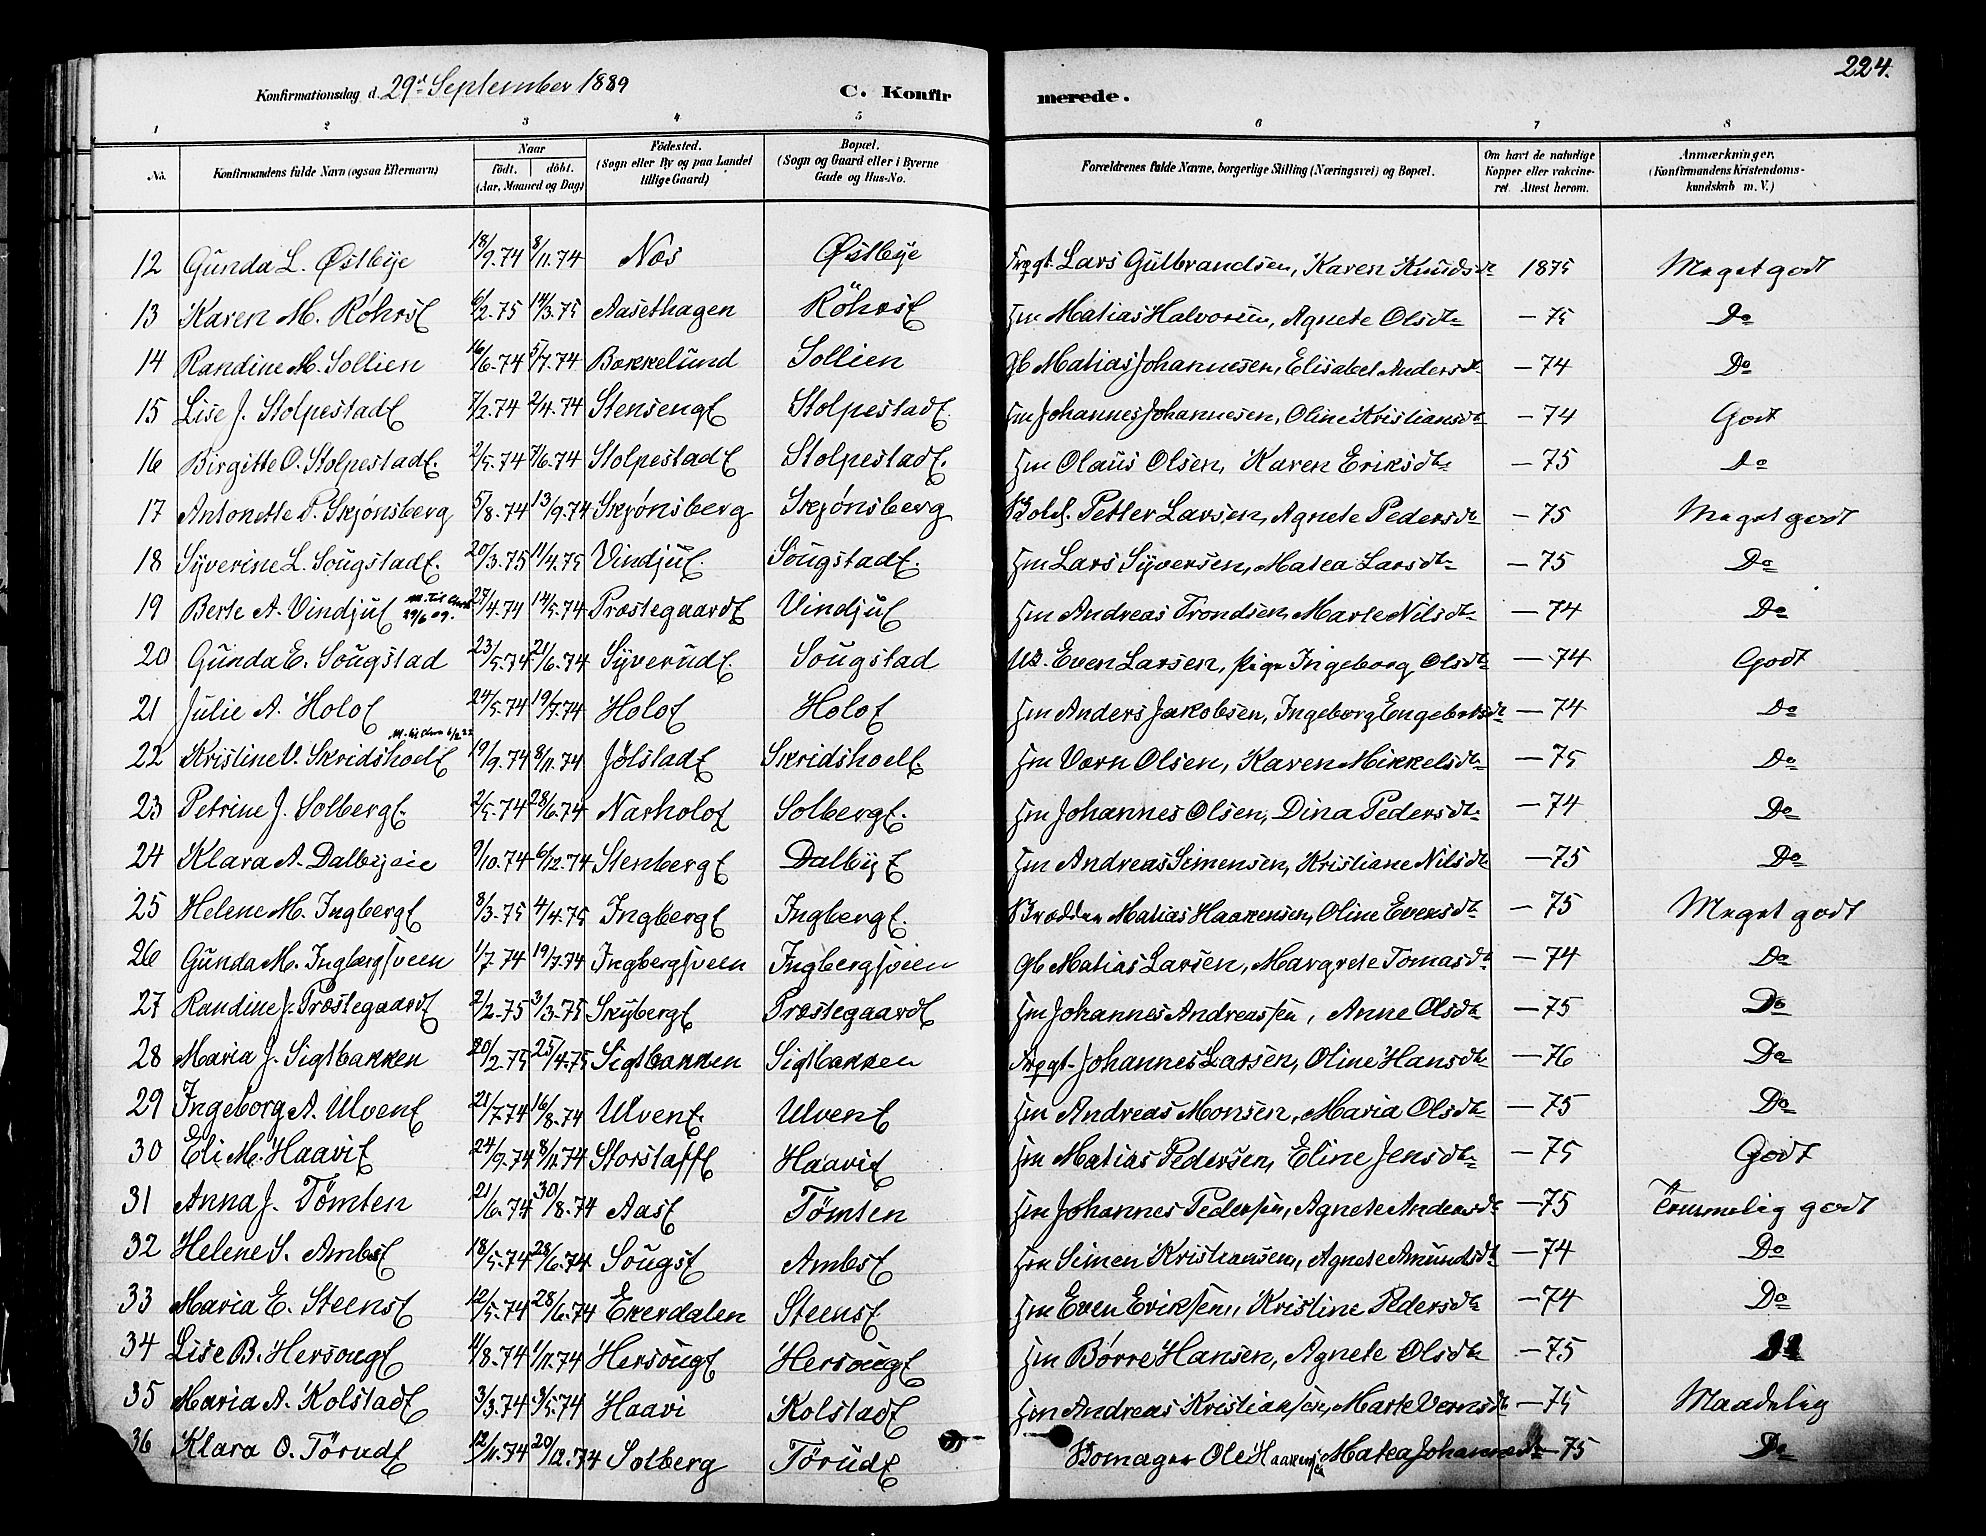 224.
Konfirmationsdag d. 29d September 1889 C. Konfirmerede.
1 2 3 4 5 6 7 8
No. Konfirmandens fulde Navn (ogsaa Efternavn) Naar født. døbt. (Aar, Maaned og Dag) Fødested. (Sogn eller By og paa Landet tillige Gaard) Bopæl. (Sogn og Gaard eller i Byerne Gade og Hus-No. Forældrenes fulde Navne, borgerlige Stilling (Næringsvei) og Bopæl. Om havt de naturlige Kopper eller vakcineret. Attest herom. Anmærkninger. (Konfirmandens Kristendomskundskab m. V.)
12 Gunda L. Østbye 18/9.74 8/11.74 Næs Østbye Lars Gulbrandsen, Karen Knudsdtr 1875 Meget godt
13 Karen M. RöhrsE 6/2.75 14/3.75 Aasethagen RöhrsE Hm Matias Halvorsen, Agnete Olsdtr — 75 Do
14 Randine M. Sollien 16/6.74 5/7.74 Bækkelund Sollien Gb Matias Johannesen, Elisabet Andersdtr — 74 Do
15 Lise J. StolpestadE 7/2.74 2/4.74 StensengE StolpestadE Hm Johannes Johannesen, Oline Kristiansdtr — 74 Godt
16 Birgitte O. StolpestadE. 2/5.74 7/6.74 StolpestadE StolpestadE. Hm Olaus Olsen, Karen Eriksdtr — 75 Do
17 Antonette P. Skjønsberg 5/8.74 13/9.74 Skjønsberg Skjønsberg Petter Larsen, Agnete Pedersdtr — 75 Meget godt
18 Syverine L. SougstadE. 20/3.75 11/4.75 VindjuE. SougstadE. Hm Lars Syversen, Matea Larsdtr — 75 Do
19 Berte A. VindjuE 29/6 09. 27/4.74 14/5.74 PræstegaardE VindjuE Hm Andreas Trondsen, Marte Nilsdtr — 74 Do
20 Gunda E. Sougstad 23/5.74 21/6.74 SyverudE. Sougstad Uk. Even Larsen, Pige Ingeborg Olsdtr — 74 Godt
21 Julie A. HoloE 24/5.74 19/7.74 HoloE HoloE Hm Anders Jakobsen, Ingeborg Engebretsdtr — 74 Do
22 Kristine V. SkridshoelE 19/9.74 8/11.74 JølstadE SkridshoelE Hm Værn Olsen, Karen Mikkelsdtr — 75 Do
23 Petrine J. SolbergE. 2/5.74 28/6.74 NarholoE SolbergE. Hm Johannes Olsen, Dina Pedersdtr — 74 Do
24 Klara A. Dalbyeie 9/10.74 6/12.74 StenbergE DalbyE Hm Andreas Simensen, Kristiane Nilsdtr — 75 Do
25 Helene M. IngbergE 8/3.75 4/4.75 IngbergE IngbergE. Matias Haakensen, Oline Evensdtr — 75 Meget godt
26 Gunda M. Ingbergsveen 1/7.74 19/7.74 Ingbergsveen Ingbergsveien Gb Matias Larsen, Margrete Tomasdtr — 74 Do
27 Randine J. PræstegaardE 2/2.75 3/3.75 SkybergE PræstegaardE Hm Johannes Andreassen, Anne Olsdtr — 75 Do
28 Maria J. Sigtbakken 20/2.75 25/4.75 Sigtbakken Sigtbakken Johannes Larsen, Oline Hansdtr — 76 Do
29 Ingeborg A. UlvenE 21/7.74 16/8.74 UlvenE. UlvenE Hm Andreas Monsen, Maria Olsdtr — 75 Do
30 Eli M. HaaviE 24/9.74 8/11.74 StorstaffE HaaviE Hm Matias Pedersen, Eline Jensdtr — 75 Godt
31 Anna J. Tömten 21/6.74 30/8.74 AasE Tömten Hm Johannes Pedersen, Agnete Andersdtr — 75 Temmelig godt
32 Helene S. AmbsE 18/5.74 28/6.74 SougsE AmbsE Hm Simen Kristiansen, Agnete Amundsdtr — 74 Do
33 Maria E. SteensE 12/5.74 28/6.74 Ekerdalen SteensE Hm Even Eriksen, Kristine Pedersdtr — 74 Do
34 Lise B. HersougE 11/8.74 1/11.74 HersougE HersougE Hm Børre Hansen, Agnete Olsdtr — 75 Do
35 Maria A. KolstadE 3/3.74 3/5.74 Haavi KolstadE Hm Andreas Kristiansen, Marte Vernsdtr — 75 Maadelig
36 Klara O. TörudE 12/11.74 20/12.74 Solberg TörudE Ole Haakensen, Matea Johannesdtr — 75 Do